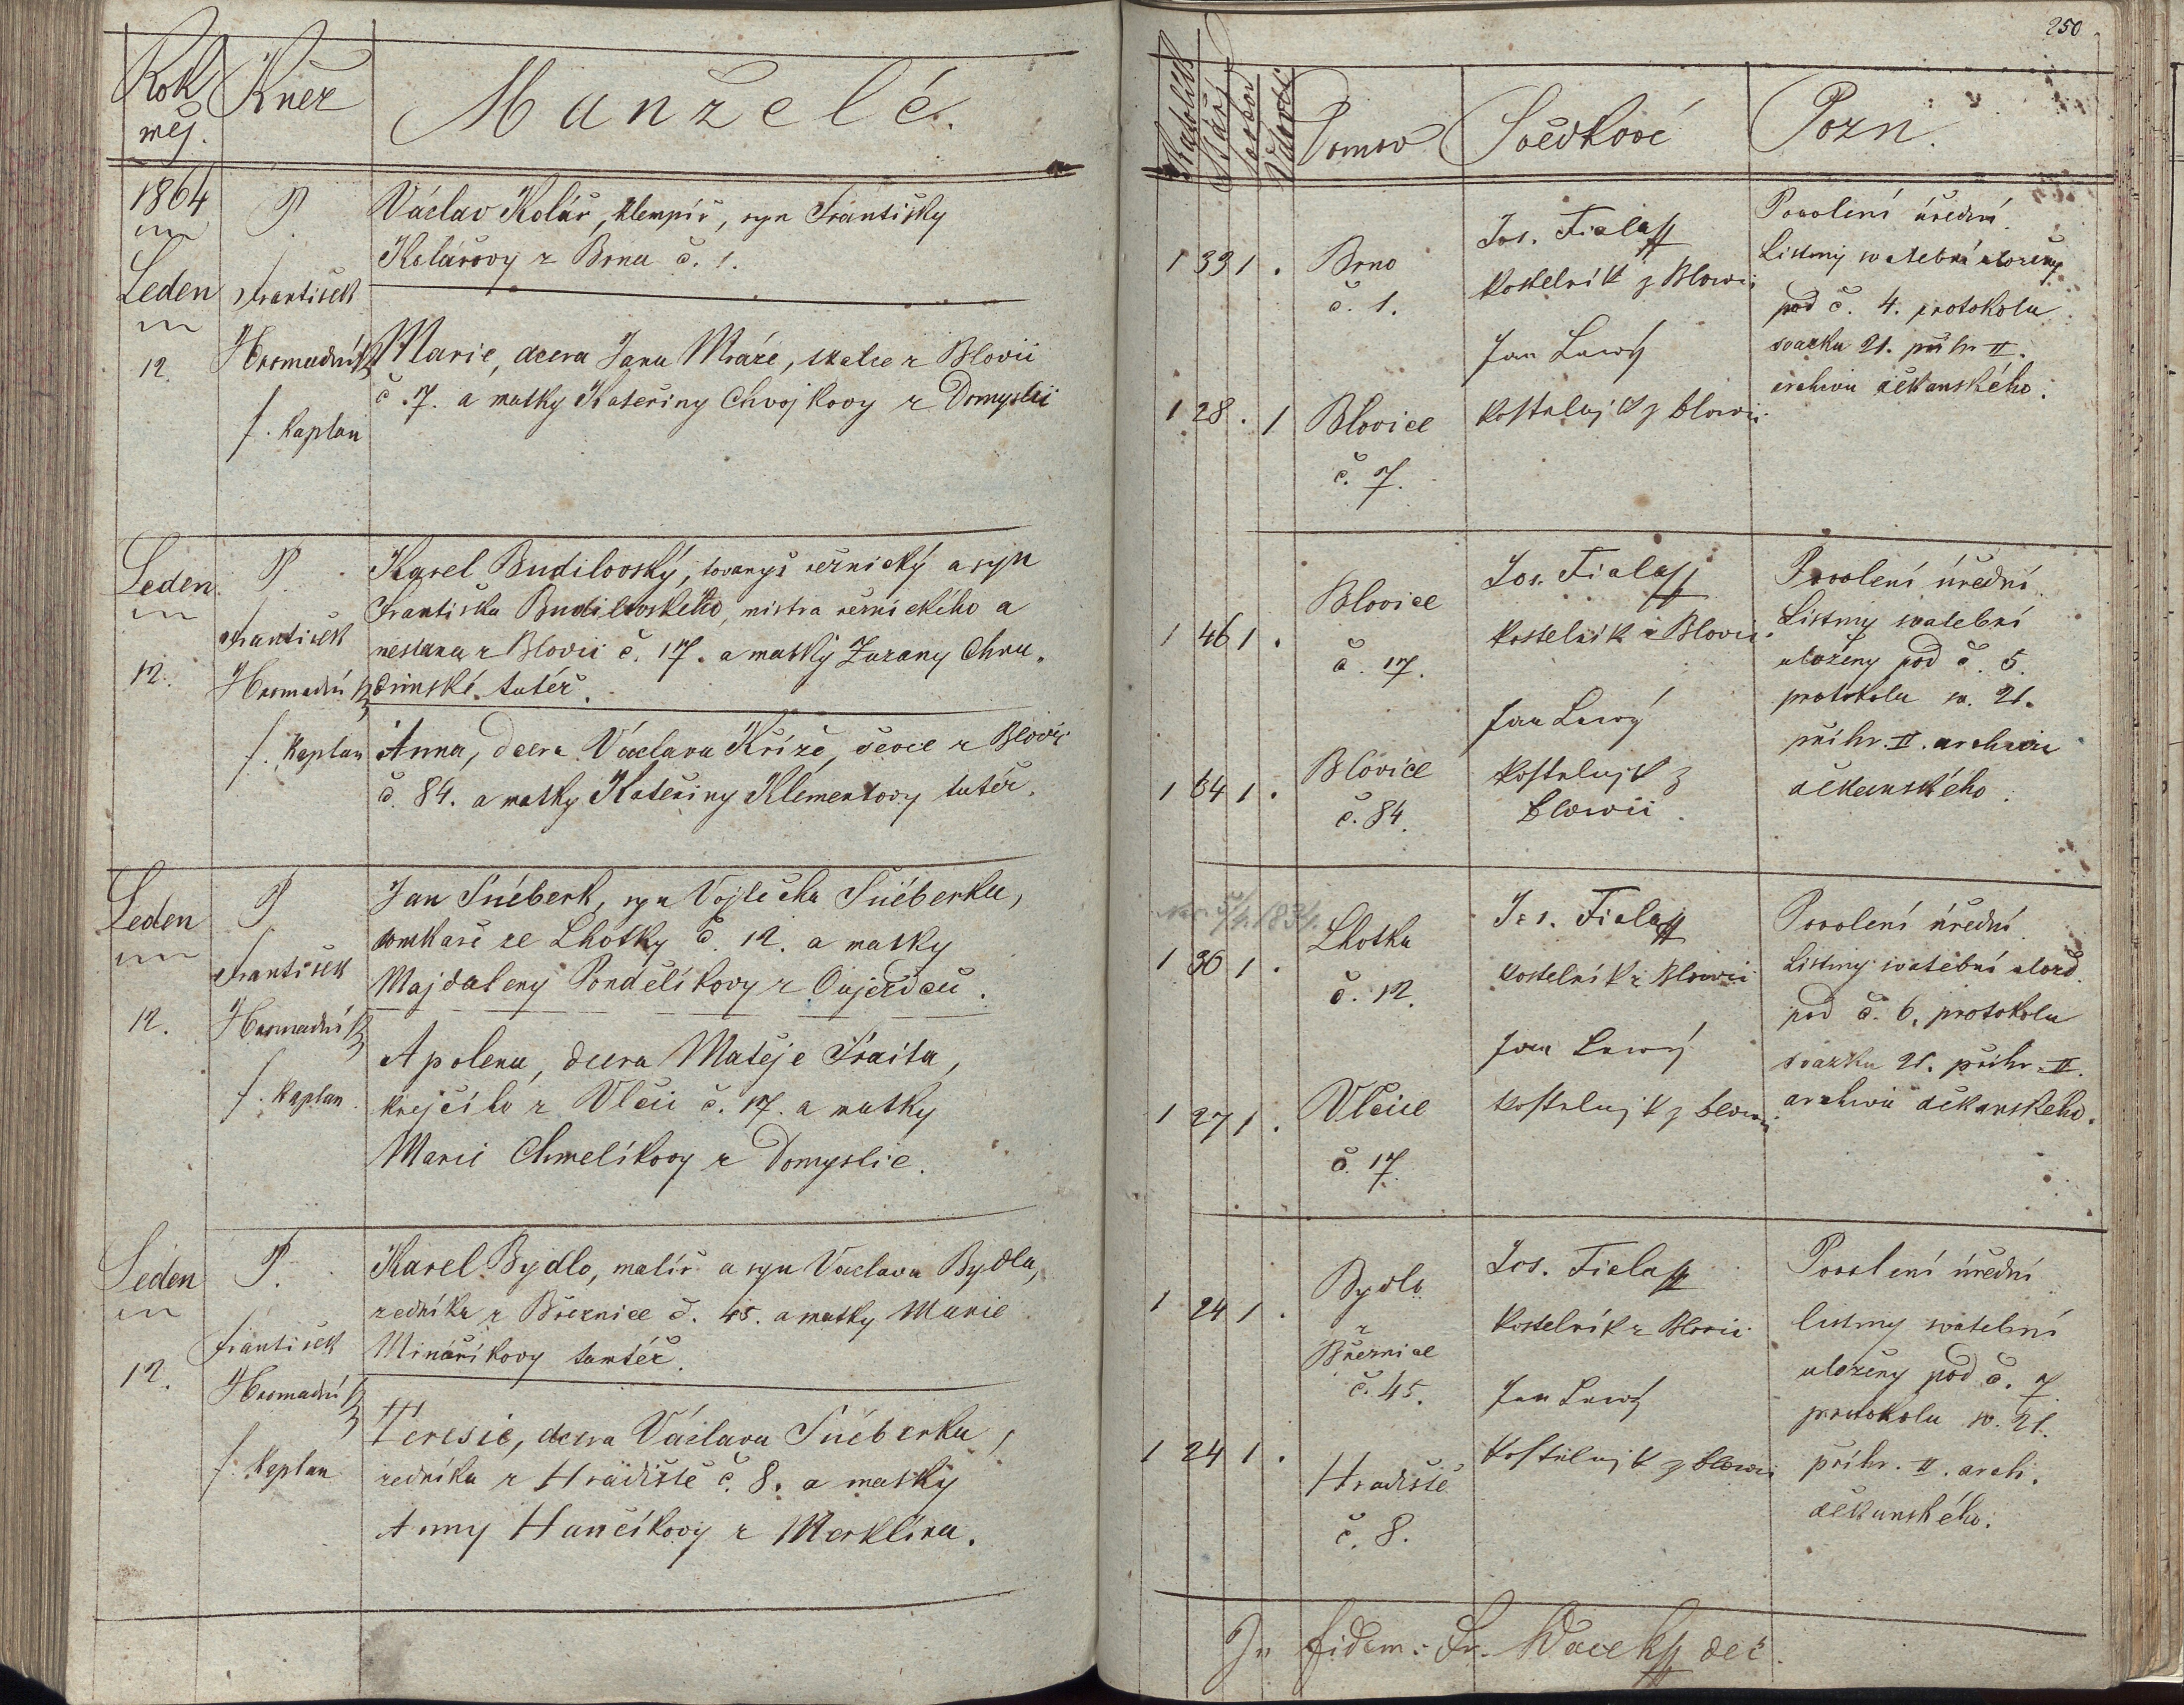 Rok
měs.
Kněz
Manželé.
1864
Leden
12.
P.
František
Hromadník
f. kaplan
Václav Kolář, klempíř, syn Františky
Kolářovy z Brna č. 1.
Marie, dcera Jana Mráze, z Blovic
č. 7. a matky Kateřiny Chvojkovy z Domyslic
Leden
12.
P.
František
Hromadník
f. kaplan
Karel Budilovský, tovaryš řeznický a syn
Františka Budilovského, mistra řeznického a
měšťana z Blovic č. 17. a matky Zuzany Chru-
dimské tutéž.
Anna, dcera Václava Kříže, ševce z Blovic
č. 84. a matky Kateřiny Klementovy tutéž.
Leden
12.
P.
František
Hromadník
f. kaplan
Jan Šnéberk, syn Vojtěcha Šnéberka,
domkaře ze Lhotky č. 12. a matky
Majdaleny Pondělíkovy z Oujezdce.
Apolena, dcera Matěje Traita,
krejčího z Vlčic č. 17. a matky
Marie Chmelíkovy z Domyslic.
Leden
12.
P.
František
Hromadník
f. kaplan
Karel Bydlo, malíř a syn Václava Bydla,
zedníka z Březnice č. 45. a matky Marie
Minaříkovy tamtéž.
Teresie, dcera Václava Šnéberka,
zedníka z Hradiště č. 8. a matky
Anny Hančíkovy z Merklína.
250
Katolick
Stáří
Vdovec
Domov
Svědkové
Pozn.
1 33 1 .
Brno
č. 1.
Jos. Fiala
kostelník z Blovic
Jan Lawý
kostelnjk z Blowic
1 28 . 1
Blovice
č. 7.
Povolení úřední
Listiny svatební uloženy
pod č. 4. protokolu
svazku 21. přihr. II.
archivu děkanského.
1 46 1 .
Blovice
č. 17.
Jos. Fiala
kostelník z Blovic
Jan Lawý
kostelnjk z
Blowic
1 34 1 .
Blovice
č. 84.
Povolení úřední
Listiny svatební
uloženy pod č. 5.
protokolu sv. 21.
přihr. II. archivu
děkanského.
1834.
1 30 1 .
Lhotka
č. 12.
Jos. Fiala
kostelník z Blowic
Jan Lawý
kostelnjk z Blowic
1 27 1 .
Vlčice
č. 17.
Povolení úřední
Listiny svatební ulož.
pod č. 6. protokolu
svazku 21. přihr. II.
archivu děkanského.
1 24 1 .
Bydlo
z
Březnice
č. 45.
Jos. Fiala
kostelník z Blovic
Jan Lawý
kostelnjk z Blowic
1 24 1 .
Hradiště
č. 8.
Povolení úřední
listiny svatební
uloženy pod č. 7.
protokolu sv. 21.
přihr. II. arch.
děkanského.
In fidem: Fr. Wacek děk.